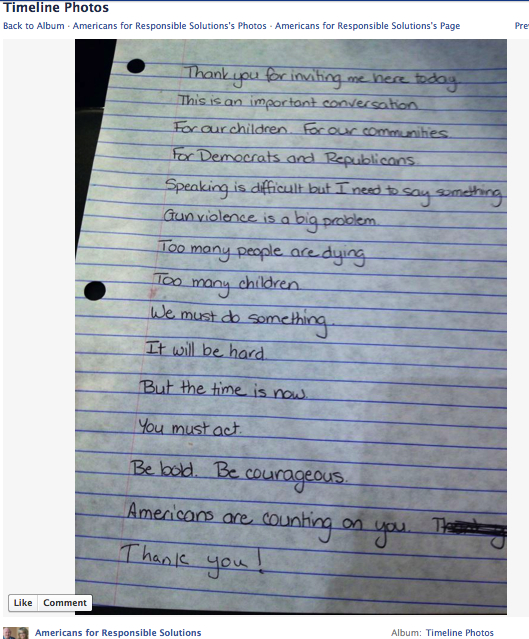 Timeline Photos
Back to Album · Americans for Responsible Solutions's Photos · Americans for Responsible Solutions's Page
Thank you for inviting me here today
This is an important conversation
For our children. For our communities.
For Democrats and Republicans.
Speaking is difficult but I need to say something
Gun violence is a big problem
Too many people are dying
Too many children.
We must do something.
It will be hard.
But the time is now.
You must act.
Be bold. Be courageous.
Americans are counting on you.
Thank you!
Like Comment
Americans for Responsible Solutions Album: Timeline Photos